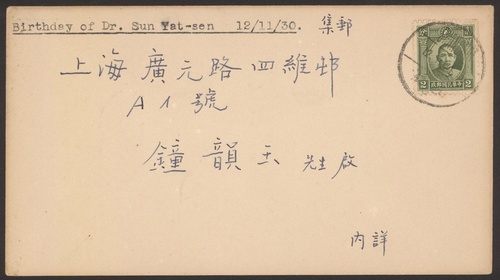 Birthday of Dr. Sun Yat-sen 12/11/30. 集郵
上海廣元路四維邨
A 1 號
鐘韻玉 先生啟
內詳
2 2